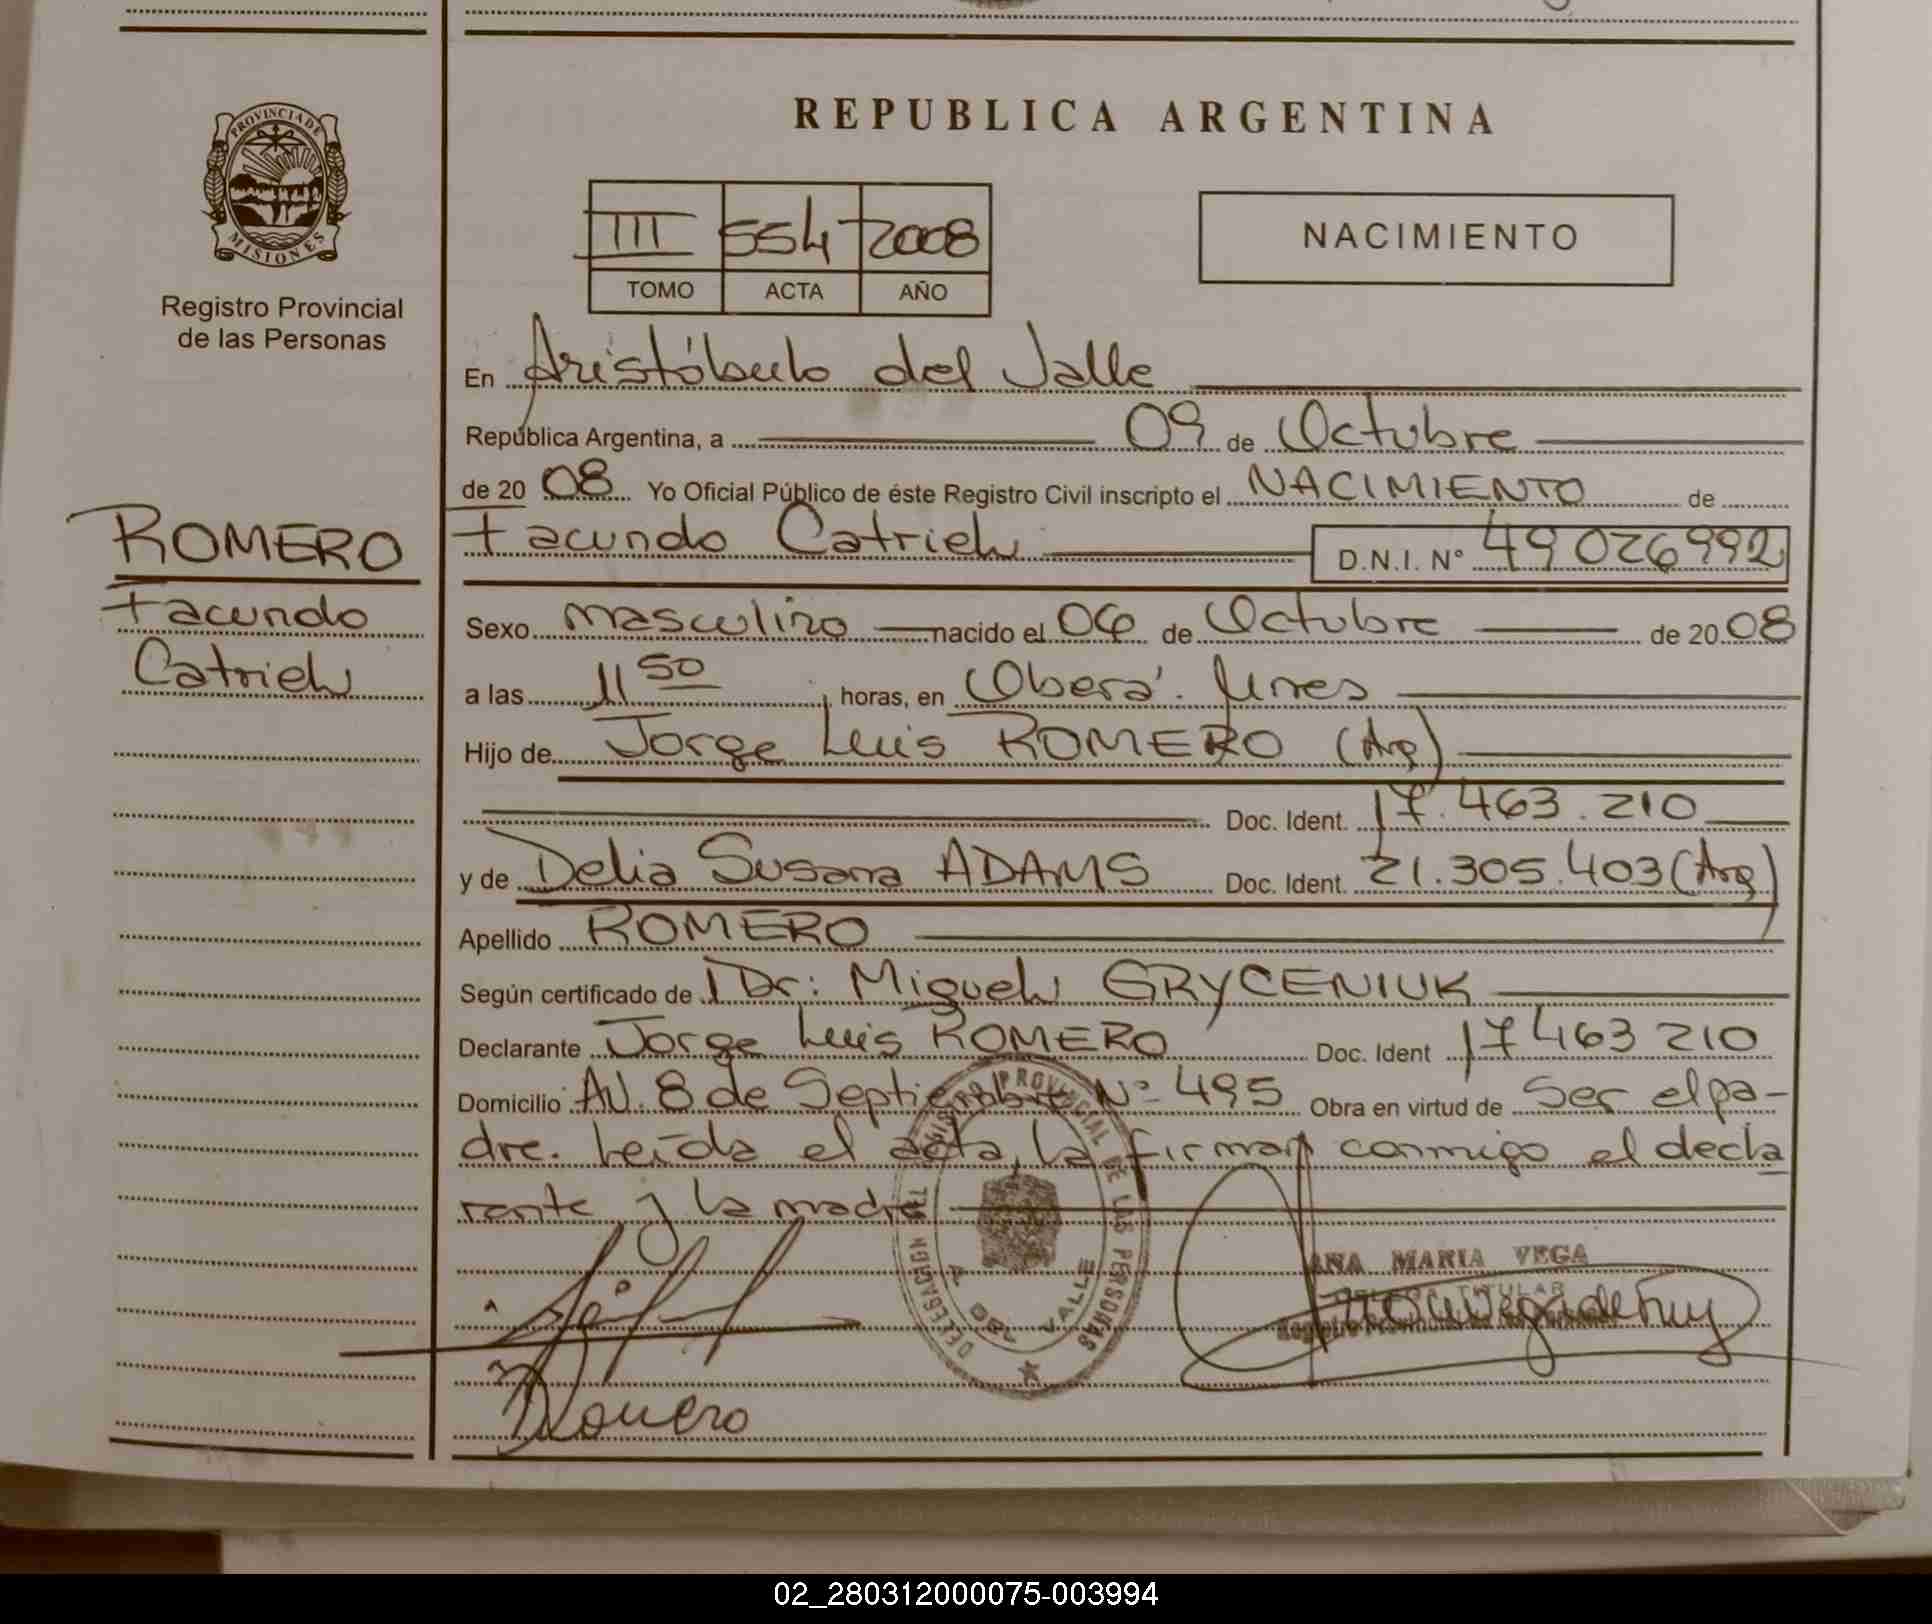 REPUBLICA ARGENTINA
PROVINCIA DE
MISIONES
Registro Provincial
de las Personas
III 554 2008
TOMO ACTA AÑO
NACIMIENTO
En Aristóbulo del Valle
República Argentina, a 09 de Octubre
de 20 08 Yo Oficial Público de éste Registro Civil inscripto el NACIMIENTO de
Facundo Catriel D.N.I. N° 49026992
ROMERO
Facundo
Catriel
Sexo masculino nacido el 06 de Octubre de 20 08
a las 11 50 horas, en Oberá.
Hijo de Jorge Luis ROMERO (Arg)
Doc. Ident. 17.463.210
y de Delia Susana ADAMS Doc. Ident. 21.305.403 (Arg)
Apellido ROMERO
Según certificado de Dr: Miguel GRYCENIUK
Declarante Jorge Luis ROMERO Doc. Ident 17463210
Domicilio AV. 8 de Septiembre N° 495 Obra en virtud de ser el pa-
dre. Leída el acta, la firman conmigo el decla
rante y la madre
REGISTRO PROVINCIAL DE LAS PERSONAS
DELEGACION
A. DEL VALLE
ANA MARIA VEGA
TITULAR
Romero
02_280312000075-003994